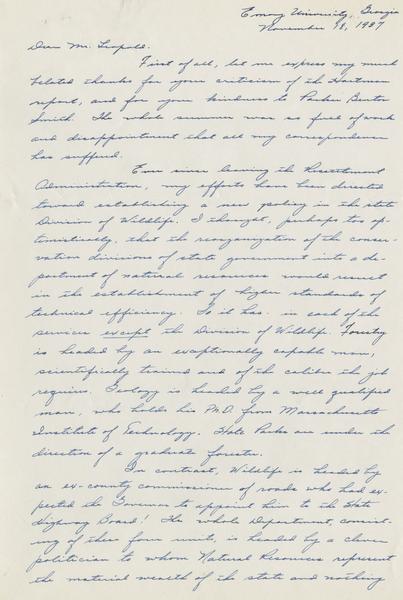 Emory University, Georgia
November 18, 1937
Dear Mr. Leopold.
First of all, let me express my much
belated thanks for your criticism of the Hartman
report, and for your kindness to Parker Benton
Smith. The whole summer was so full of work
and disappointment that all my correspondence
has suffered.
Ever since leaving the Resettlement
Administration, my efforts have been directed
toward establishing a new policy in the state
Division of Wildlife. I thought, perhaps too op-
timistically, that the reorganization of the conser-
vation divisions of state government into a de-
partment of natural resources would result
in the establishment of higher standards of
technical efficiency. So it has in each of the
services except the Division of Wildlife. Forestry
is headed by an exceptionally capable man,
scientifically trained and of the calibre the job
requires. Geology is headed by a well qualified
man, who holds his PhD. from Massachusetts
Institute of Technology. State Parks are under the
direction of a graduate forester.
In contrast, Wildlife is headed by
an ex-county commissioner of roads who had ex-
pected the Governor to appoint him to the State
Highway Board! The whole Department, consist-
ing of these four units, is headed by a clever
politician to whom Natural Resources represent
the material wealth of the state and nothing